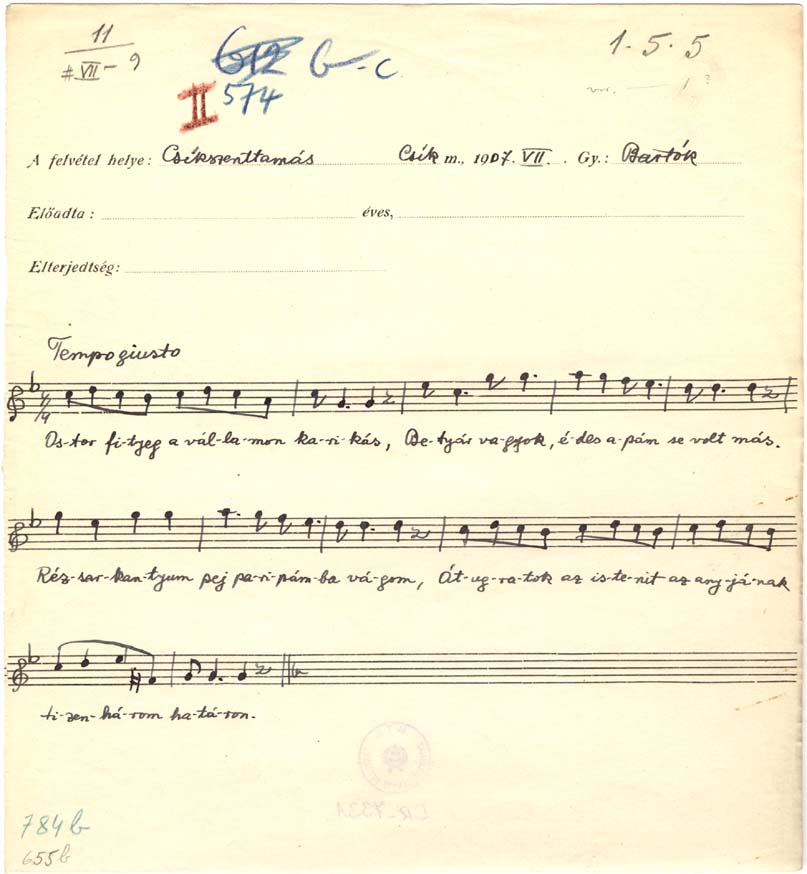 11
# VII - 9
612 b-c
1. 5. 5
var. 1?
II 574
A felvétel helye: Csíkszenttamás Csík m., 1907. VII. Gy.: Bartók
Előadta: éves,
Elterjedtség:
Tempo giusto
Os-tor fi-tyeg a vál-la-mon ka-ri-kás, Be-tyár va-gyok, é-des a-pám se volt más.
Réz-sar-kan-tyum pej pa-ri-pám-ba vá-gom, Át-ug-ra-tok az is-te-nit az any-já-nak
ti-zen-há-rom ha-tá-ron.
784 b
655 b